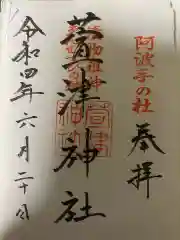 阿波手の杜
奉拝
萱津神社
令和四年六月二十日